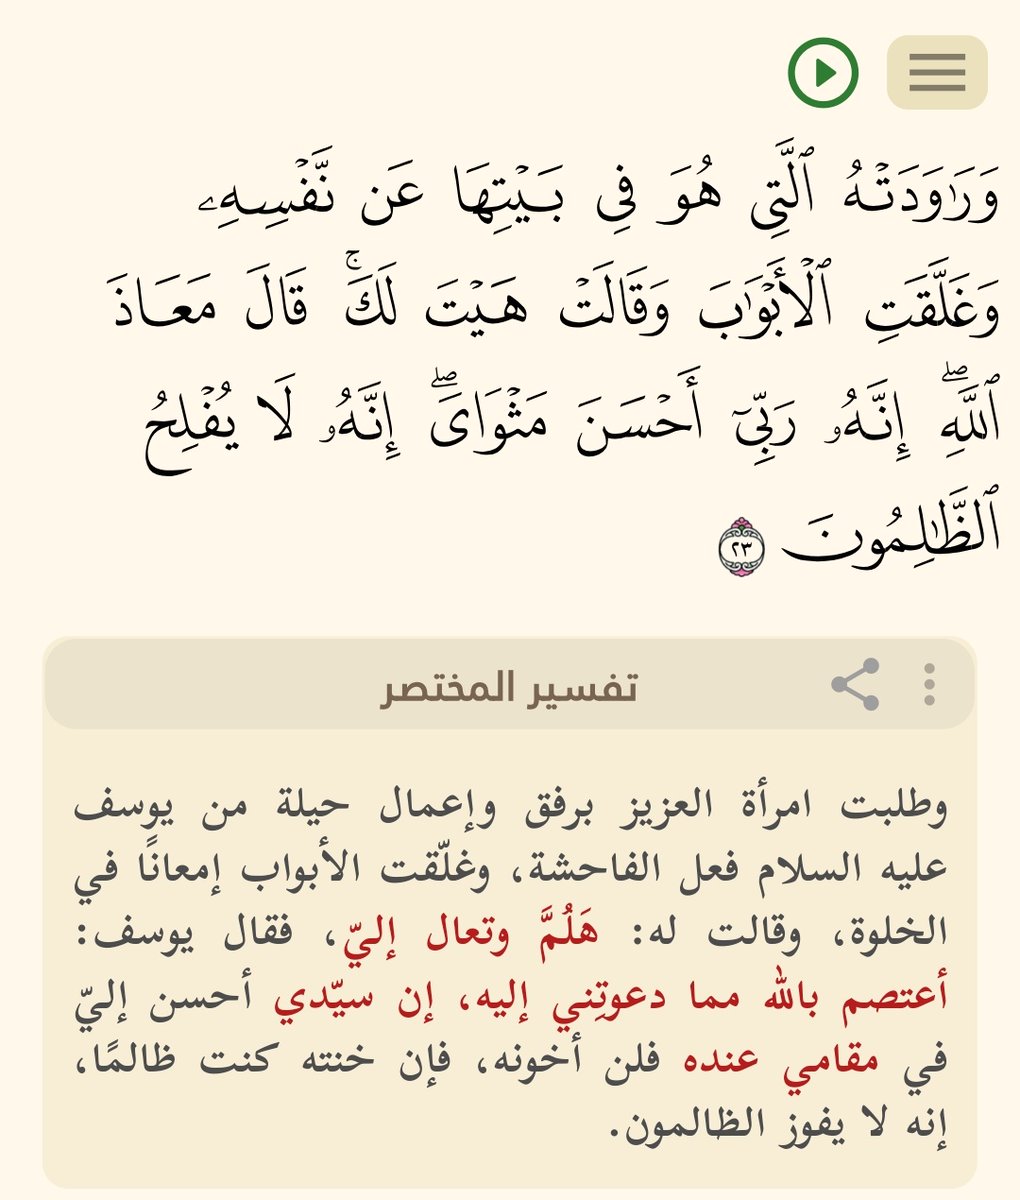 وَرَٰوَدَتۡهُ ٱلَّتِي هُوَ فِي بَيۡتِهَا عَن نَّفۡسِهِۦ
وَغَلَّقَتِ ٱلۡأَبۡوَٰبَ وَقَالَتۡ هَيۡتَ لَكَۚ قَالَ مَعَاذَ
ٱللَّهِۖ إِنَّهُۥ رَبِّيٓ أَحۡسَنَ مَثۡوَايَۖ إِنَّهُۥ لَا يُفۡلِحُ
ٱلظَّٰلِمُونَ ٢٣
تفسير المختصر
وطلبت امرأة العزيز برفق وإعمال حيلة من يوسف
عليه السلام فعل الفاحشة، وغلّقت الأبواب إمعانًا في
الخلوة، وقالت له: هَلُمَّ وتعال إليّ، فقال يوسف:
أعتصم بالله مما دعوتِني إليه، إن سيّدي أحسن إليّ
في مقامي عنده فلن أخونه، فإن خنته كنت ظالمًا،
إنه لا يفوز الظالمون.